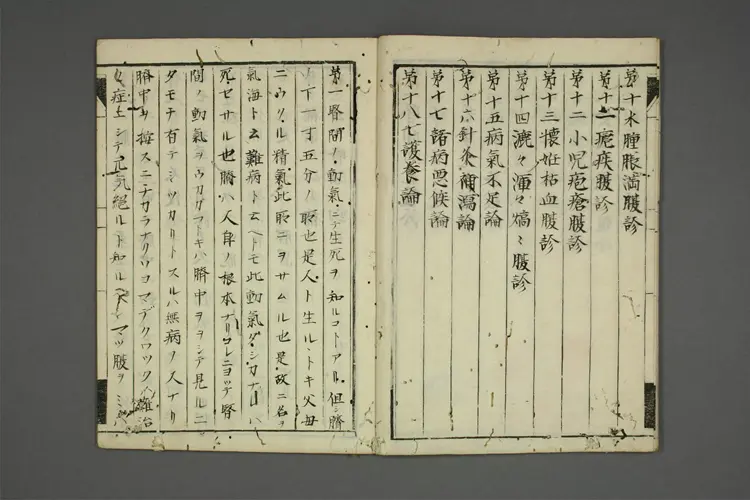 第十水腫脹満腹診
第十一瘧疾腹診
第十二小児疱瘡腹診
第十三懐妊枯血腹診
第十四漉々渾々熇々腹診
第十五病氣不足論
第十六針灸補瀉論
第十七諸病悪候論
第十八七護養論
第一腎間ノ動氣ニテ生死ヲ知ルコトアル但シ臍
ノ下一寸五分ノ所也是人ト生ルヽトキ父母
ニウクル精氣此所ニヲサムル也是故ニ名ヲ
氣海ト云難病ト云ヘトモ此動氣タシカナレハ
死セサル也臍ハ人身ノ根本ナリコレニヨッテ腎
間ノ動氣ヲウカガフトキハ臍中ヲヲシテ見ルニ
タモチ有テミツカリトスルハ無病ノ人ナリ
臍中ヲ按スニチカラナクソコマデクワックハ難治
ノ症土シテ正気絶ルト知ルヘシマツ腹ヲミ